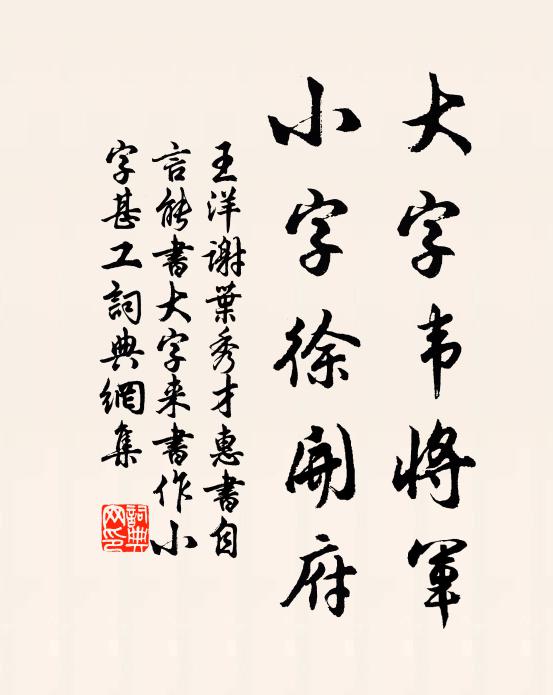 大字韦將軍
小字徐開府
王洋謝葉秀才惠書自
言能書大字来書作小
字甚工詞典網集
詞典
网印